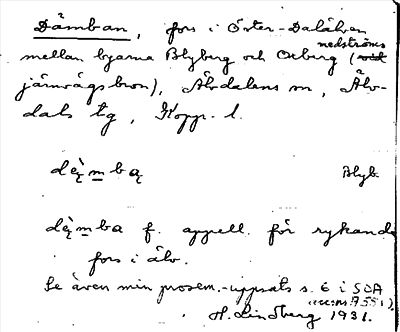 Dämban, fors i Öster-Dalälven
mellan byarna Blyberg och Oxberg (nedströms
järnvägsbron), Älvdalens sn, Älv-
dals tg, Kopp. l.
dę̀mbą Blyb.
dę̀mba f. appell. för rykande
fors i älv.
Se även min prosem.-uppsats s. 6 i SOA
H. Lindberg 1931.